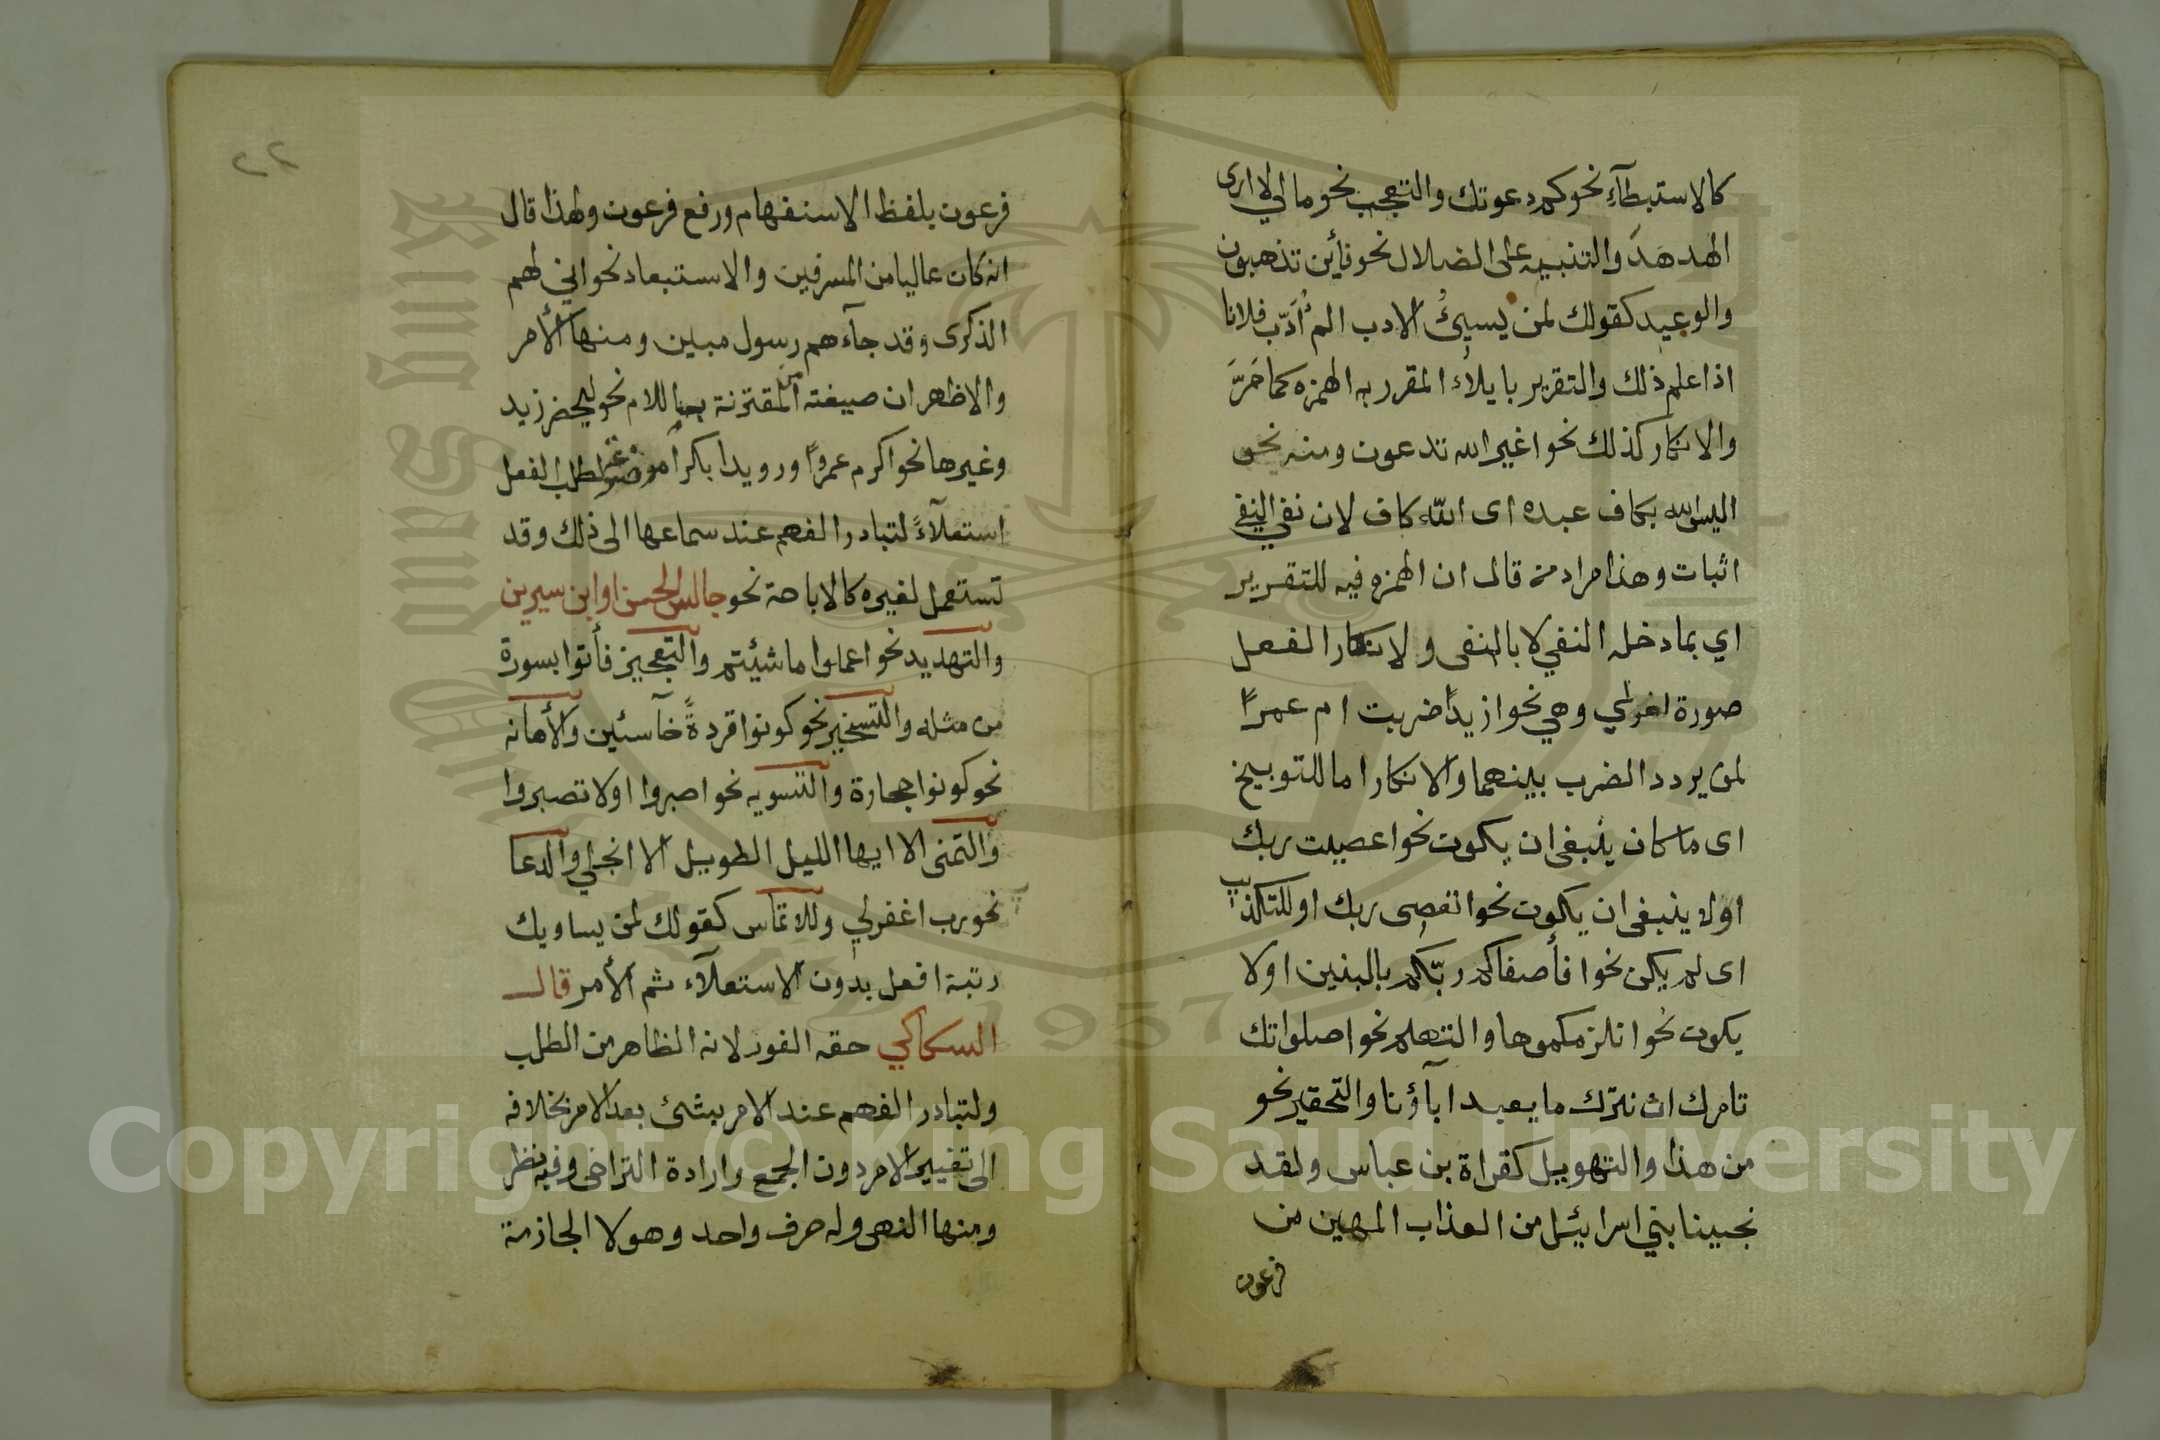 كالاستبطآء نحو كم دعوتك والتعجب نحو مالي لا ارى
الهدهد والتنبيه على الضلال نحو فأين تذهبون
والوعيد كقولك لمن يسيئ الادب الم أُأدّب فلانا
اذا علم ذلك والتقرير بايلاء المقرر به الهمزه كما مَرَّ
والانكار كذلك نحو اغير الله تدعون ومنه نحو
اليس الله بكاف عبده اى الله كاف لان نفي النفي
اثبات وهذا مراد من قال ان الهمزه فيه للتقرير
اي بما دخله النفي لا بالنفى ولانكار الفعل
صورة اخرى وهي نحو ازيدًا ضربت ام عمرًا
لمن يردد الضرب بينهما والانكار اما للتوبيخ
اى ما كان ينبغى ان يكون نحو اعصيت ربك
اولا ينبغى ان يكون نحو اتعصى ربك او للتكذيب
اى لم يكن نحو افأصفاكم ربّكم بالبنين اولا
يكون نحو انلزمكموها والتهكم نحو اصلواتك
تامرك ان نترك ما يعبد ابآؤنا والتحقير نحو
من هذا والتهويل كقراة بن عباس ولقد
نجينا بني اسرائيل من العذاب المهين من
فرعون
٢٢
فرعون بلفظ الاستفهام ورفع فرعون ولهذا قال
انه كان عاليا من المسرفين والاستبعاد نحو اني لهم
الذكرى وقد جآءهم رسول مبين ومنها الأمر
والاظهر ان صيغته من المقترنة باللام نحو ليحضر زيد
وغيرها نحو اكرم عمروًا ورويدا بكراً موضوعة لطلب الفعل
استعلآءً لتبادر الفهم عند سماعها الى ذلك وقد
تستعمل لغيره كالاباحة نحو جالس الحسن او ابن سيرين
والتهديد نحو اعملوا ما شيئتم والتعجيز فأتوا بسورة
من مثله والتسخير نحو كونوا قردةً خآسئين والأهانه
نحو كونوا حجارة والتسويه نحو اصبروا اولا تصبروا
والتمنى الا ايها الليل الطويل الا انجلي والدعا
نحو رب اغفرلي وللالتماس كقولك لمن يساويك
رتبة افعل بدون الاستعلآء ثم الأمر قال
السكاكي حقه الفور لانه الظاهر من الطلب
ولتبادر الفهم عند الامر بشئ بعد الامر بخلافه
الى تغيير الامر دون الجمع وارادة التراخى وفيه نظر
ومنها النهى وله حرف واحد وهو لا الجازمة
King Saud University
1957
Copyright © King Saud University